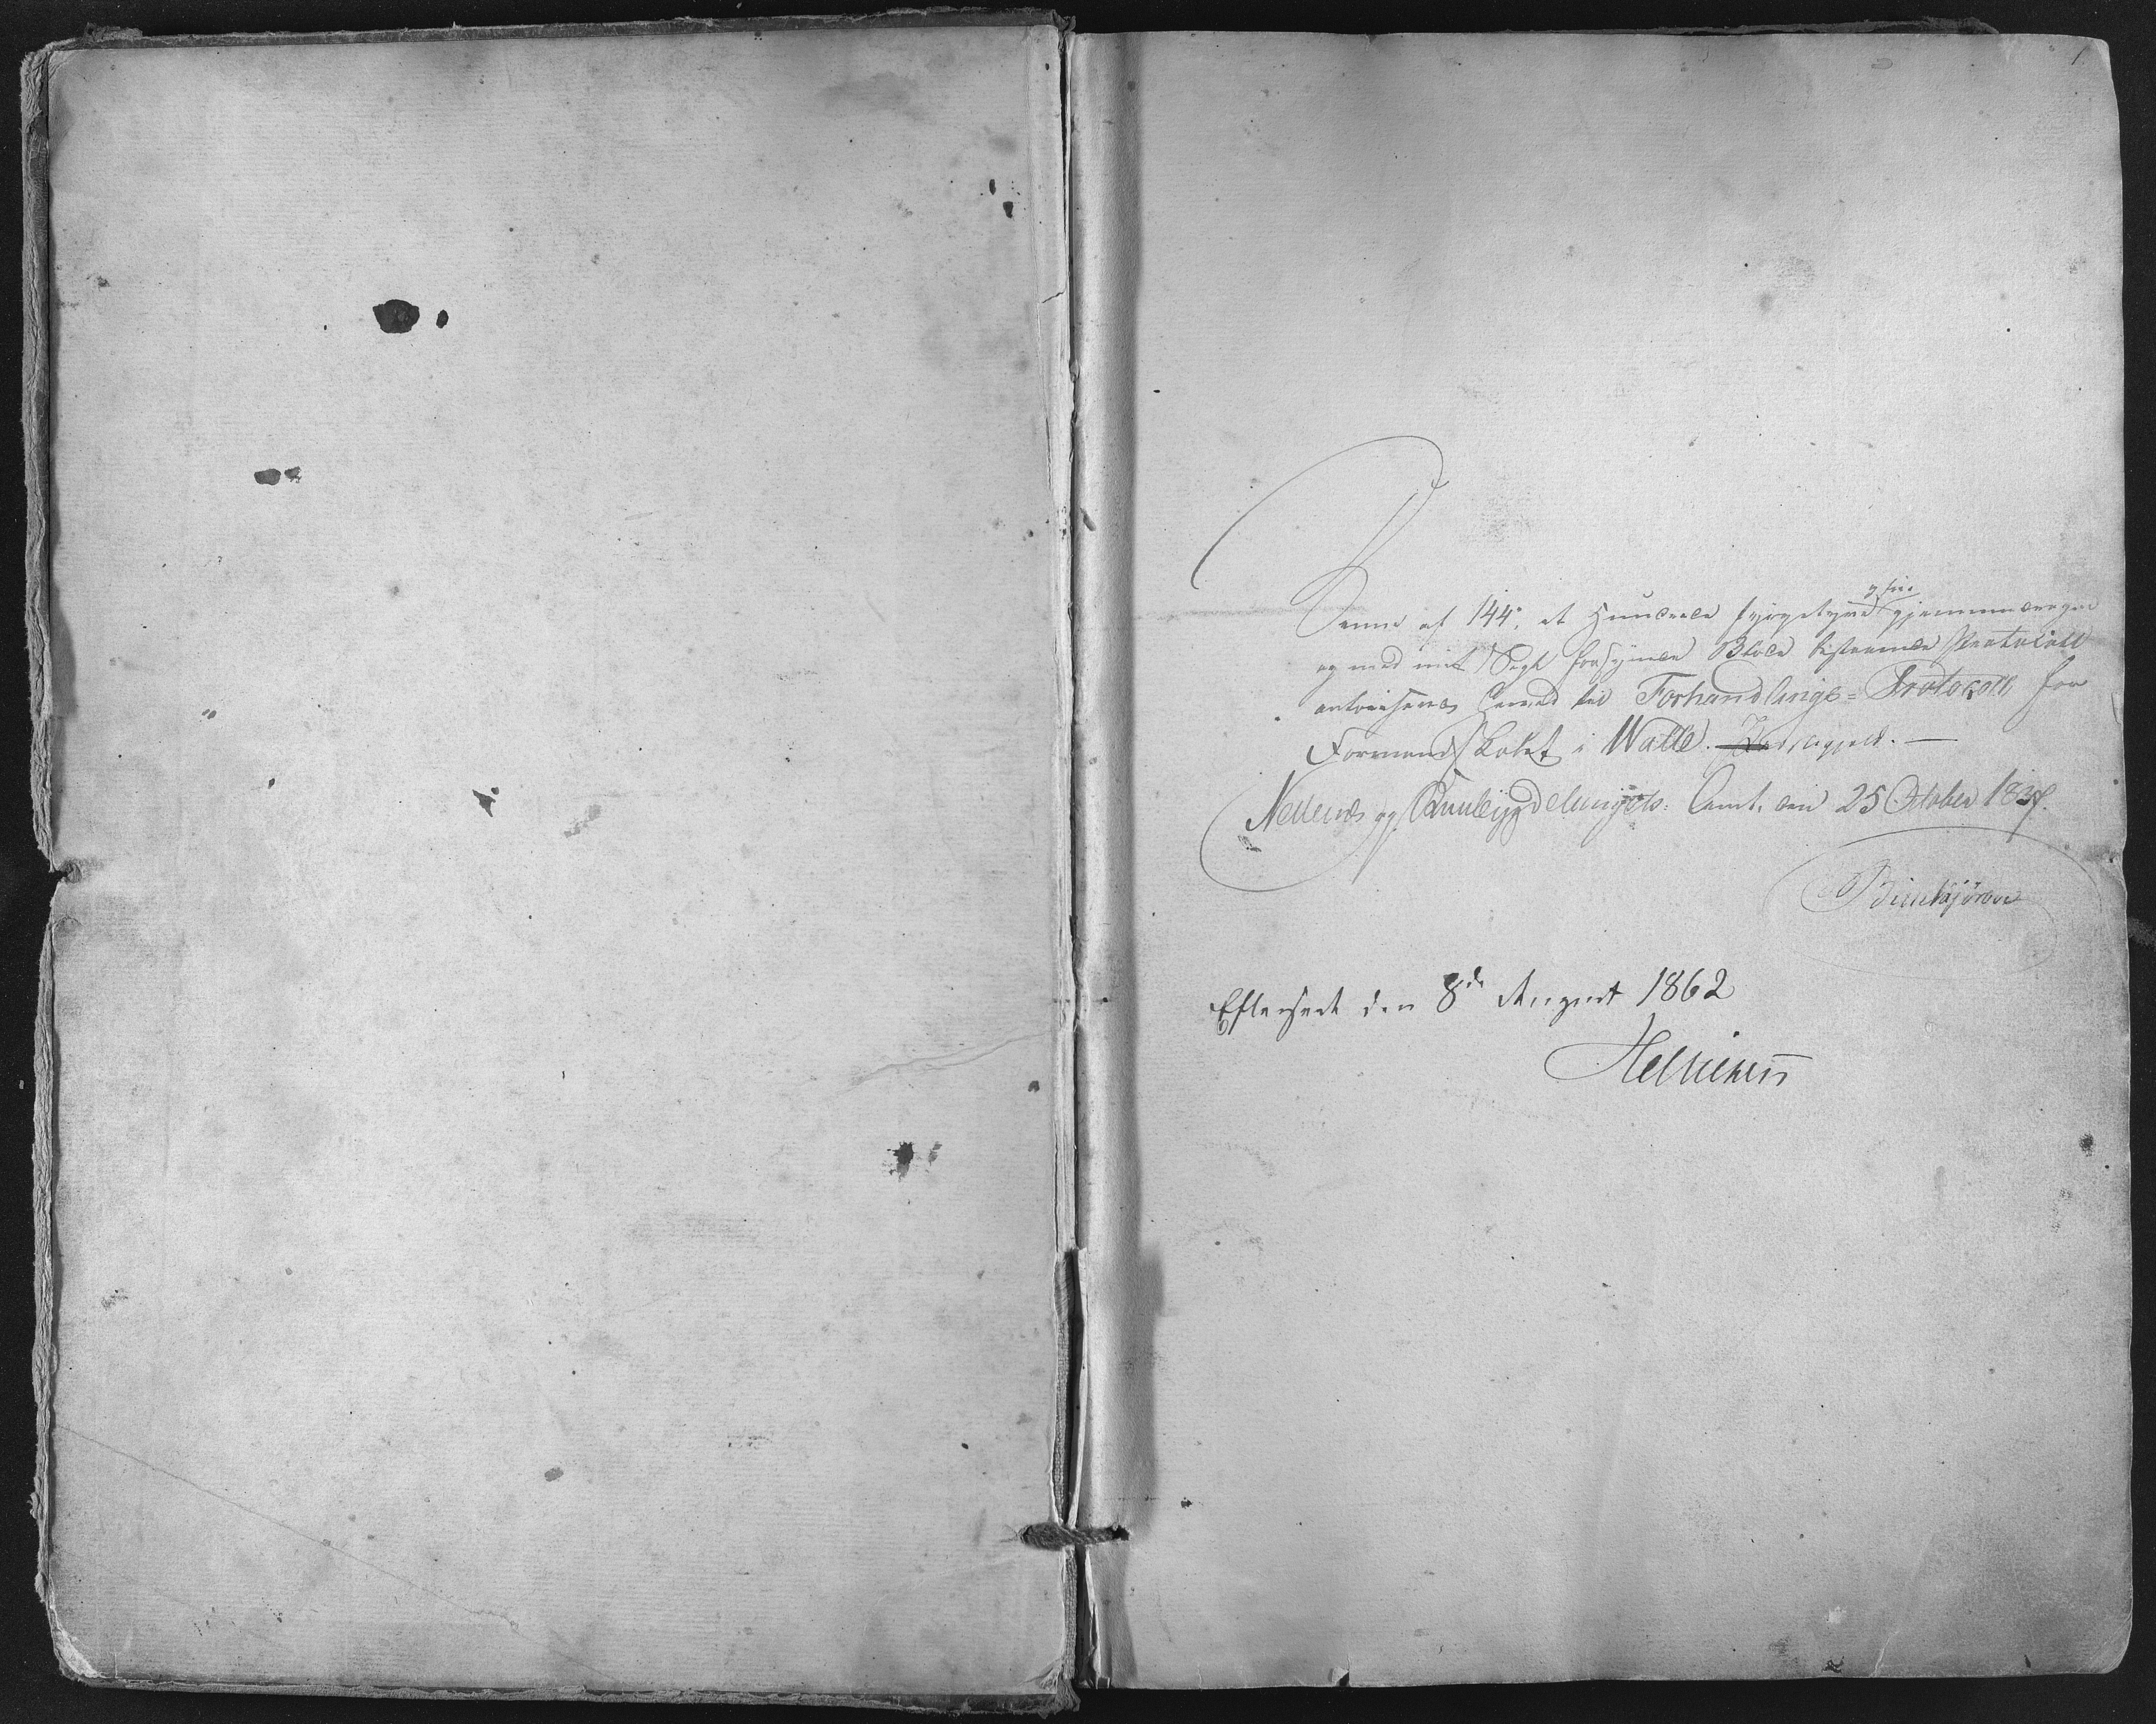 1
og fire
Denne af 144, et Hundrede fyrgetyve gjennemdragne
og med mit Segl forsynede Blade bestaaende Protocoll
autoriseres herved til Forhandlings=Protocoll for
Formandskabet i Walle Præstegjeld. —
Nedenes og Raabygdelaugets Amt, den 25 October 1837.
Efterseet den 8de August 1862